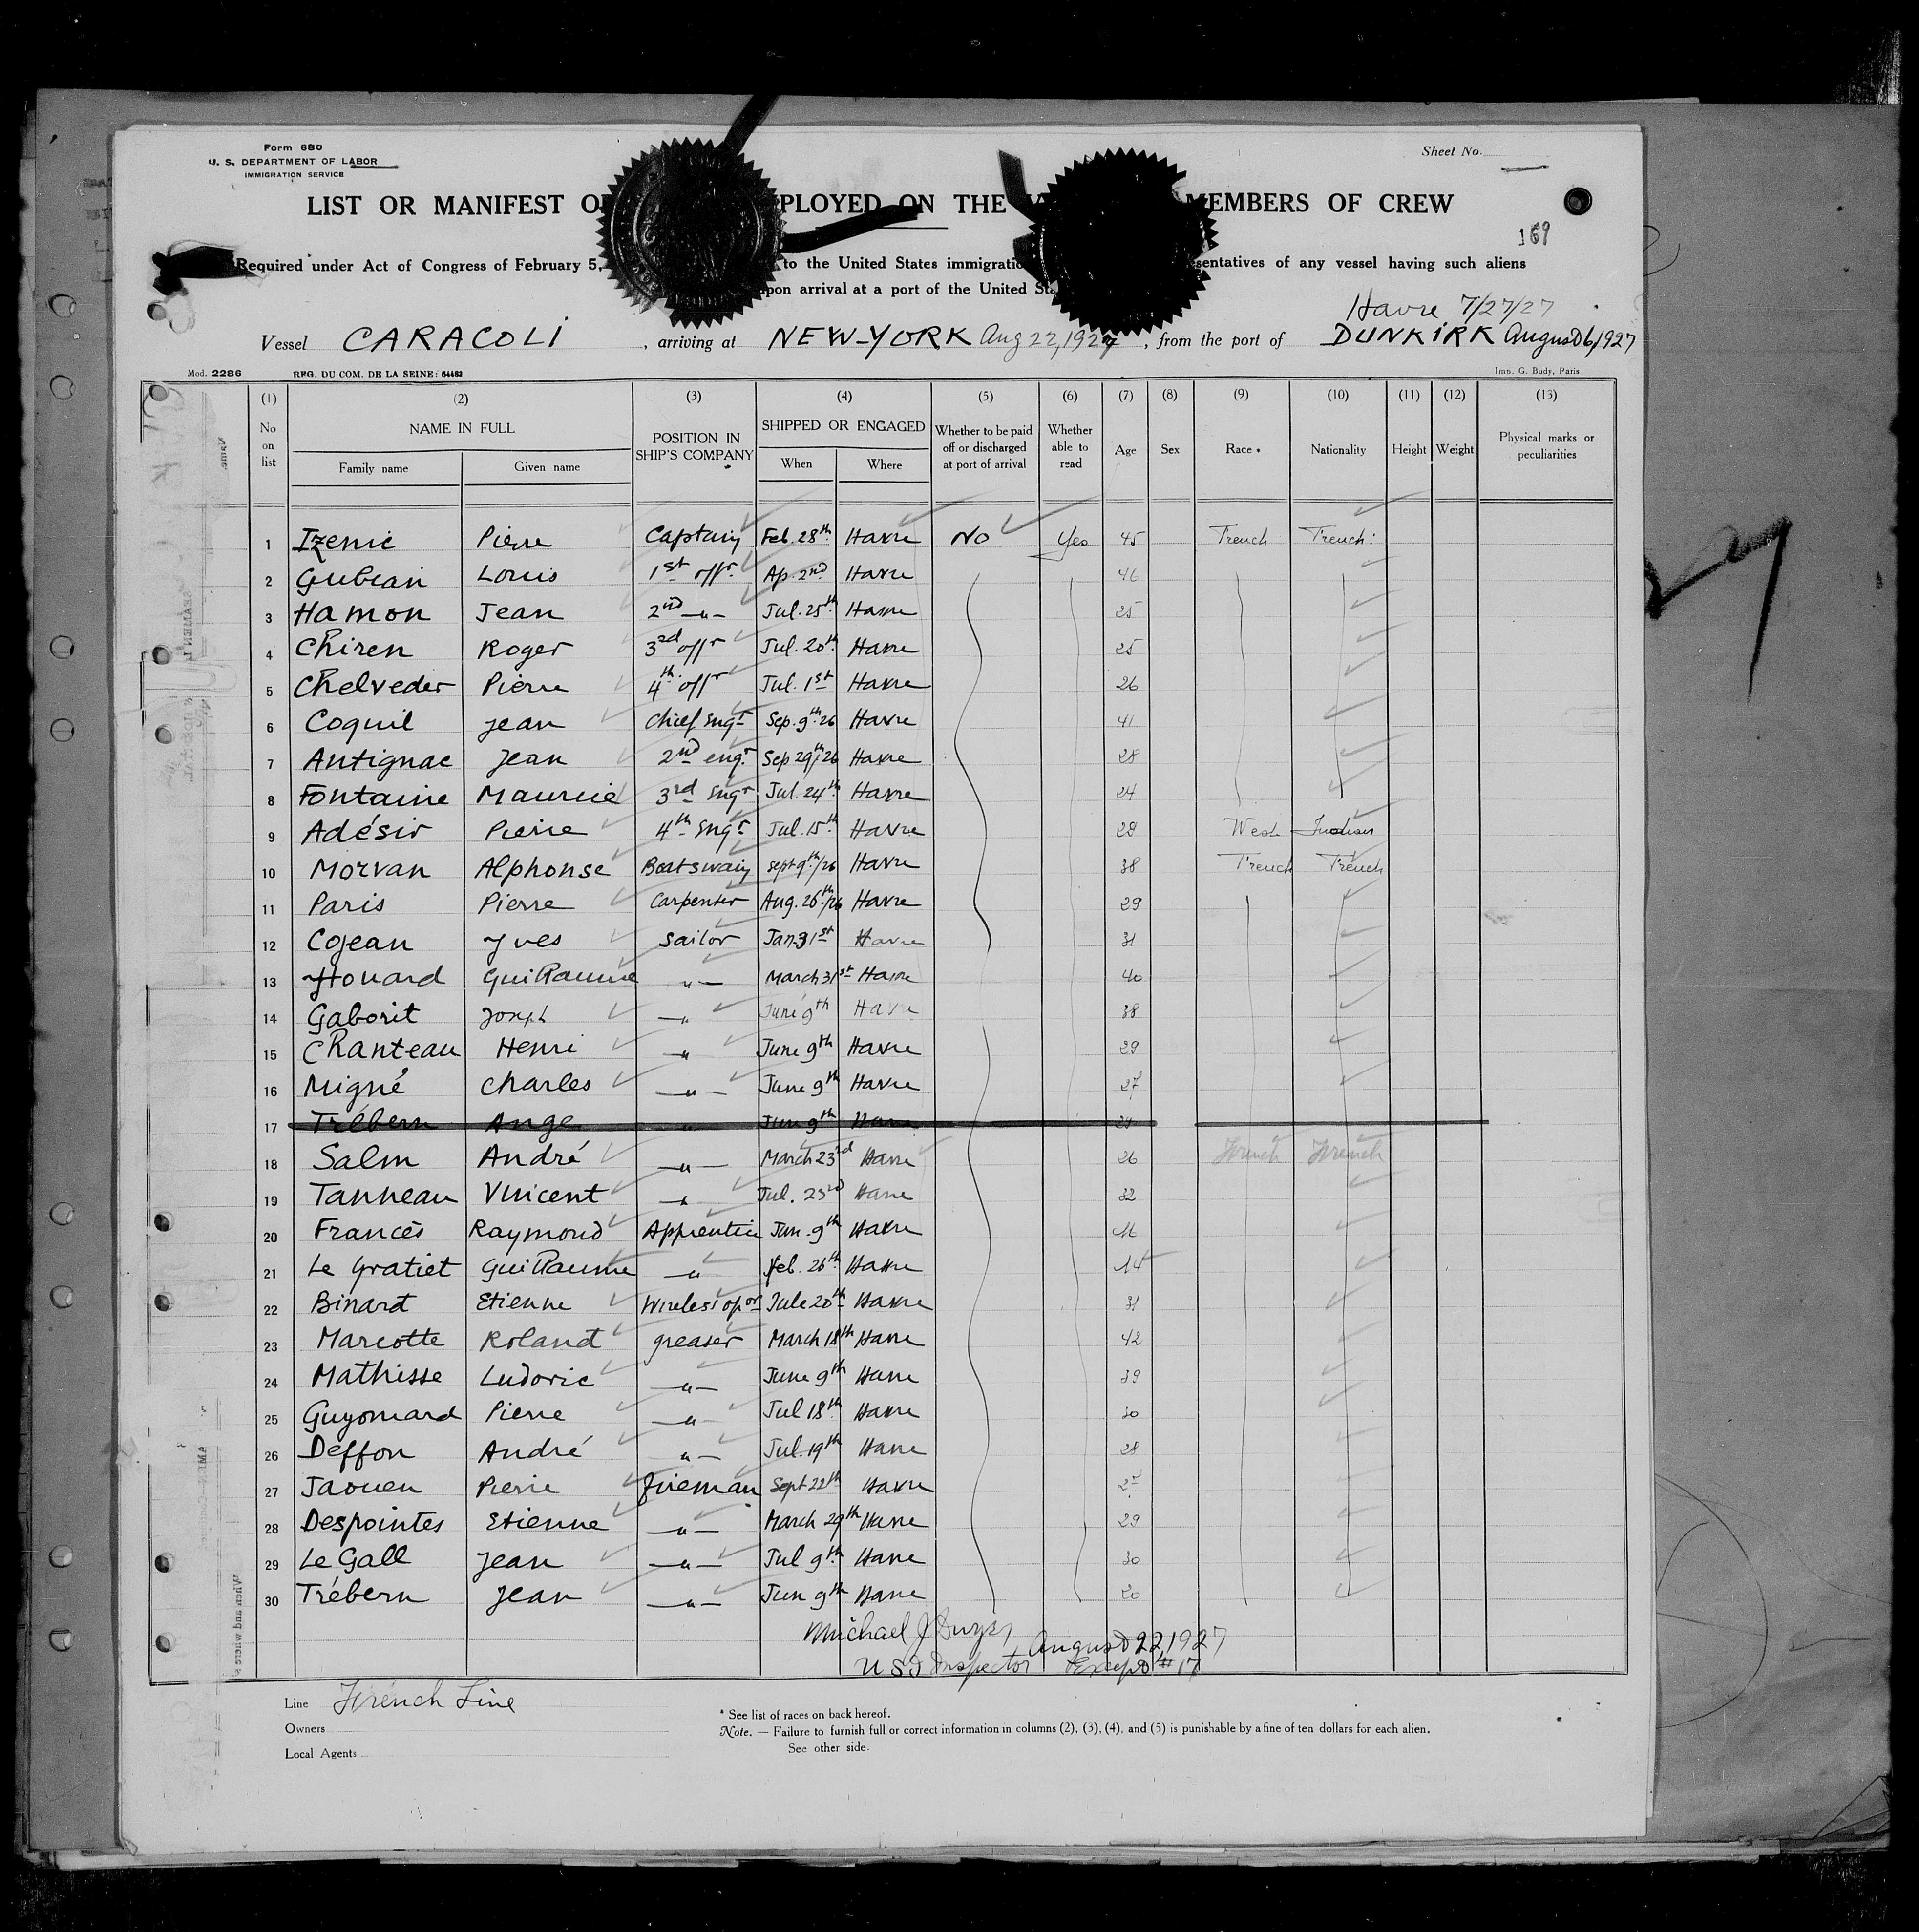 Form 680
U. S. DEPARTMENT OF LABOR
IMMIGRATION SERVICE
Sheet No.
LIST OR MANIFEST O PLOYED ON THE MEMBERS OF CREW
169
Required under Act of Congress of February 5, to the United States immigratio sentatives of any vessel having such aliens
upon arrival at a port of the United Sta
Havre 7/27/27
Vessel CARACOLI , arriving at NEW-YORK Aug 22, 1927, from the port of DUNKIRK August 6, 1927
Mod. 2286 REG. DU COM. DE LA SEINE: 64483 Imp. G. Budy, Paris
(1) (2) (3) (4) (5) (6) (7) (8) (9) (10) (11) (12) (13)
No on list NAME IN FULL Family name Given name POSITION IN SHIP'S COMPANY SHIPPED OR ENGAGED When Where Whether to be paid off or discharged at port of arrival Whether able to read Age Sex Race * Nationality Height Weight Physical marks or peculiarities
1 Izenic Pierre Captain Feb. 28th Havre No Yes 45 French French
2 Gubian Louis 1st offr Ap. 2nd Havre 46
3 Hamon Jean 2nd -"- Jul. 25th Havre 25
4 Chiren Roger 3rd offr Jul. 20th Havre 25
5 Chelveder Pierre 4th offr Jul. 1st Havre 26
6 Coquil Jean Chief Engr Sep. 9th 26 Havre 41
7 Antignac Jean 2nd engr Sep 29th 26 Havre 28
8 Fontaine Maurice 3rd Engr Jul. 24th Havre 24
9 Adésir Pierre 4th Engr Jul. 15th Havre 28 West Indian
10 Morvan Alphonse Boatswain Sept 9th/26 Havre 38 French French
11 Paris Pierre Carpenter Aug. 26th/26 Havre 29
12 Cojean Yves Sailor Jan 31st Havre 31
13 Houard Guillaume -"- March 31st Havre 40
14 Gaborit Joseph -"- June 9th Havre 38
15 Chanteau Henri -"- June 9th Havre 29
16 Migné Charles -"- June 9th Havre 27
17 Trébern Ange -"- Jun 9th Havre
18 Salm André -"- March 23rd Havre 26 French French
19 Tanneau Vincent -"- Jul. 23rd Havre 32
20 Francès Raymond Apprentice Jun. 9th Havre 16
21 Le Gratiet Guillaume -"- Feb. 26th Havre 14
22 Binard Etienne Wireless opor Jule 20th Havre 31
23 Marcotte Roland greaser March 18th Havre 42
24 Mathisse Ludovic -"- June 9th Havre 39
25 Guyomard Pierre -"- Jul 18th Havre 30
26 Deffon André -"- Jul. 19th Havre 28
27 Jaouen Pierre Fireman Sept 22th Havre
28 Despointes Etienne -"- March 29th Havre 29
29 Le Gall Jean -"- Jul 9th Havre 30
30 Trébern Jean -"- Jun 9th Havre 20
Michael J Dwyer August 22, 1927
U S I Inspector Except # 17
Line French Line
Owners
Local Agents
* See list of races on back hereof.
Note. — Failure to furnish full or correct information in columns (2), (3), (4), and (5) is punishable by a fine of ten dollars for each alien.
See other side.